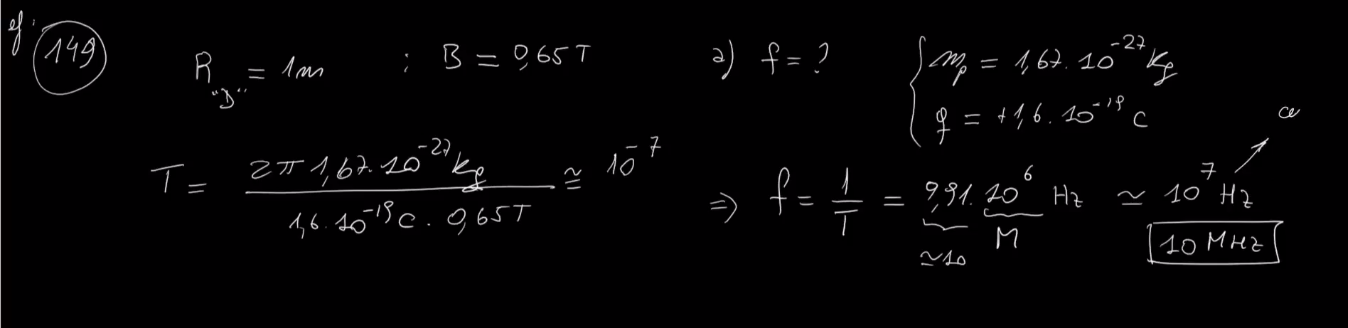 ef: 149
R"D" = 1m ; B = 0,65 T
a) f = ? { mp = 1,67 . 10^-27 kg
q = +1,6 . 10^-19 C
T = 2π 1,67 . 10^-27 kg / 1,6 . 10^-19 C . 0,65 T ≅ 10^-7
⇒ f = 1/T = 9,91 . 10^6 Hz ≃ 10^7 Hz
≃10 M 10 MHz